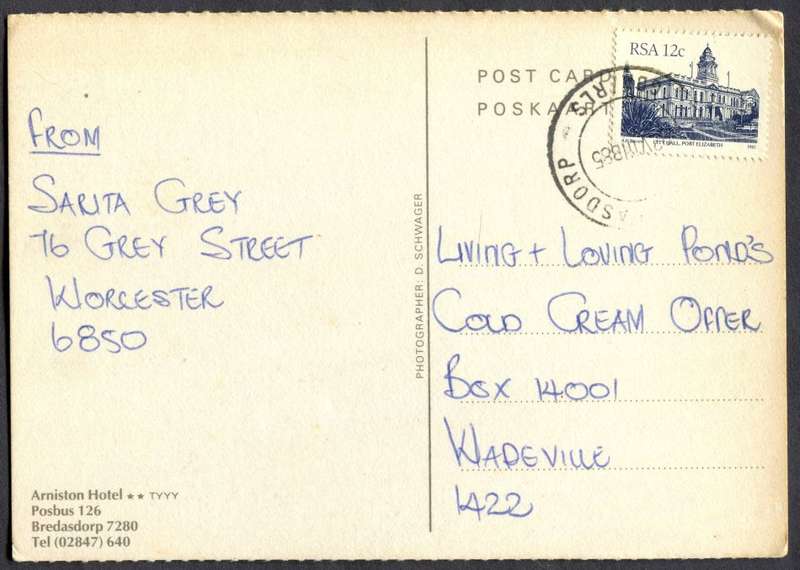 FROM
SARITA GREY
76 GREY STREET
WORCESTER
6850
Arniston Hotel ★★ TYYY
Posbus 126
Bredasdorp 7280
Tel (02847) 640
PHOTOGRAPHER: D. SCHWAGER
POST CARD
POSKAART
RSA 12c
CITY HALL, PORT ELIZABETH
ASDORP
LIVING + LOVING POND'S
COLD CREAM OFFER
BOX 14001
WADEVILLE
1422